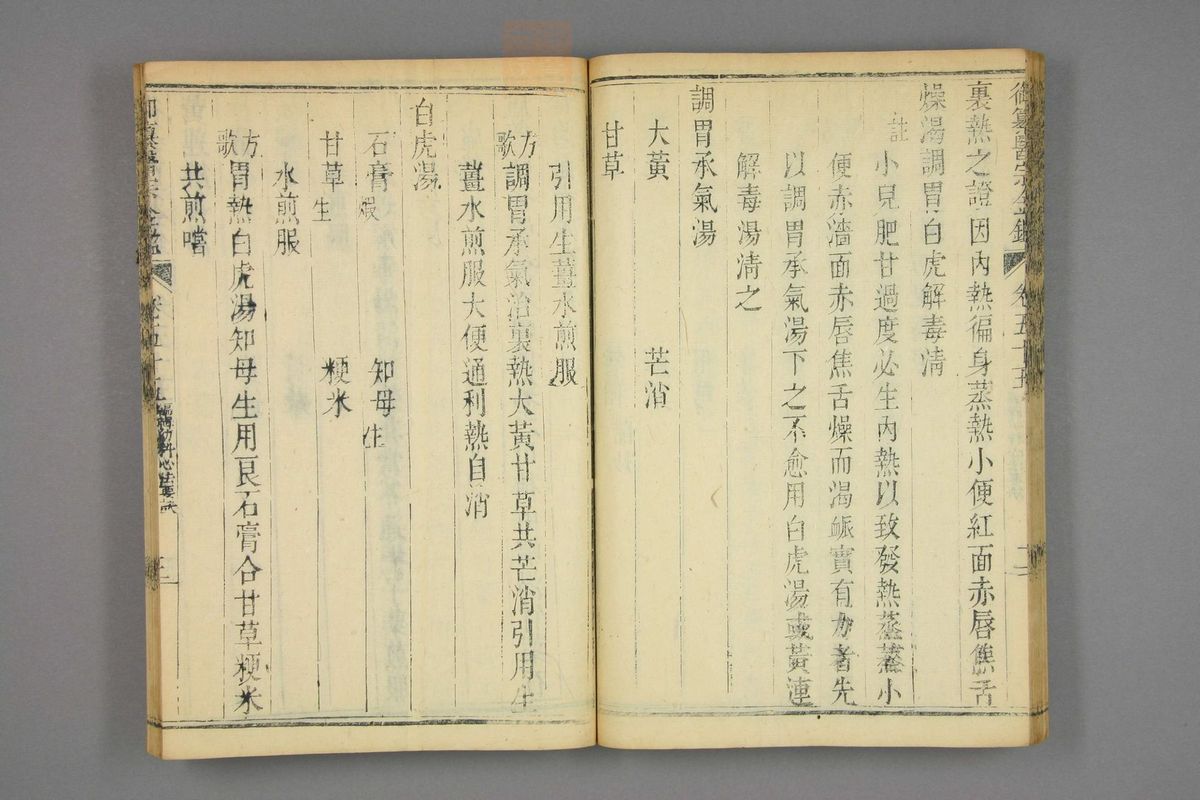 御纂醫宗金鑑 卷五十五 二
裏熱之證因內熱徧身蒸熱小便紅面赤唇焦舌
燥渴調胃白虎解毒清
註 小兒肥甘過度必生內熱以致發熱蒸蒸小
便赤濇面赤唇焦舌燥而渴脈實有力者先
以調胃承氣湯下之不愈用白虎湯或黃連
解毒湯淸之
調胃承氣湯
大黃 芒消
甘草
引用生薑水煎服
方歌 調胃承氣治裏熱大黃甘草共芒消引用生
薑水煎服大便通利熱自消
白虎湯
石膏煆 知母生
甘草生 粳米
水煎服
方歌 胃熱白虎湯知母生用良石膏合甘草粳米
共煎嘗
卷五十五 編輯幼科心法要訣